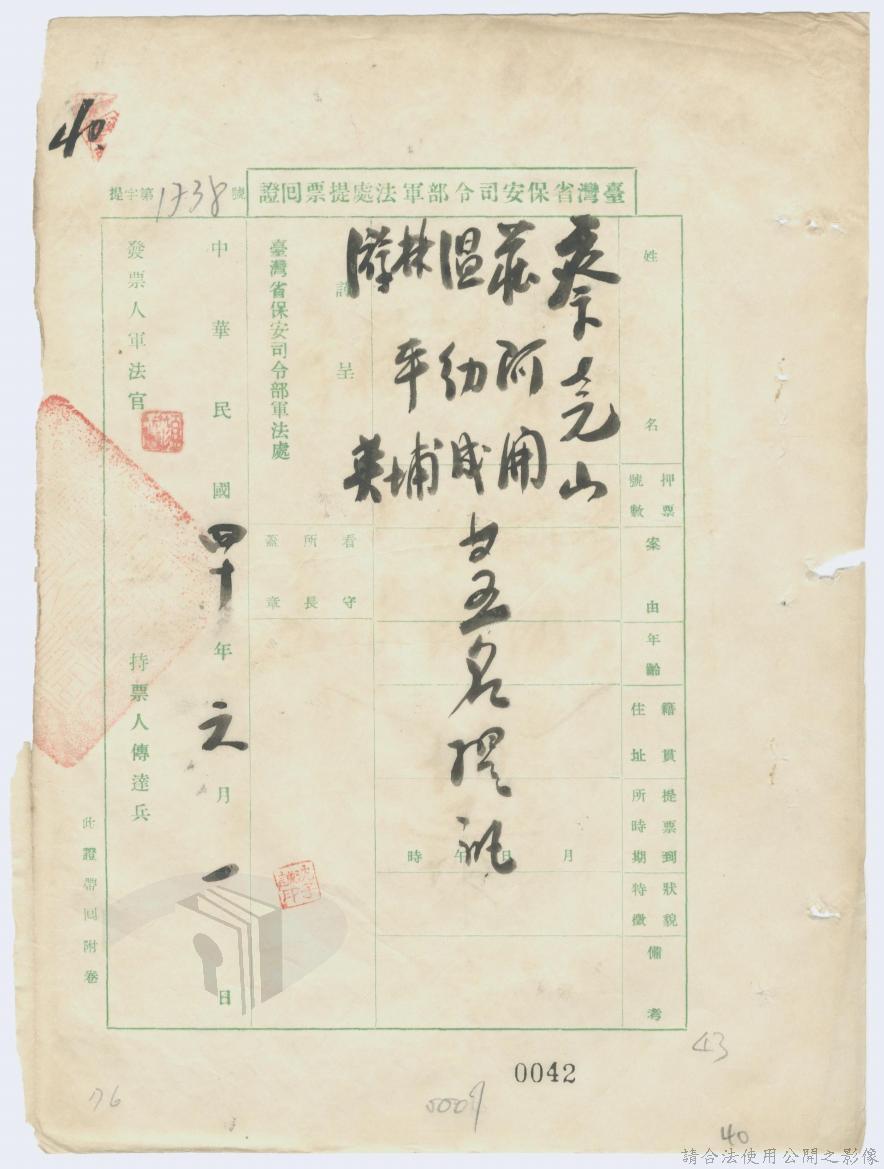 40.
臺灣省保安司令部軍法處提票回證
提字第1738號
姓名
押票號數
案由
年齡
籍貫住址
提票到所時期
狀貌特徵
備考
蔡堯山
莊阿開
溫幼成
林平埔
游英
等五名提訊
月日午時
謹呈
臺灣省保安司令部軍法處
看守所長蓋章
中華民國四十年元月一日
發票人軍法官
持票人傳達兵
此證帶回附卷
43
0042
76
40
請合法使用公開之影像